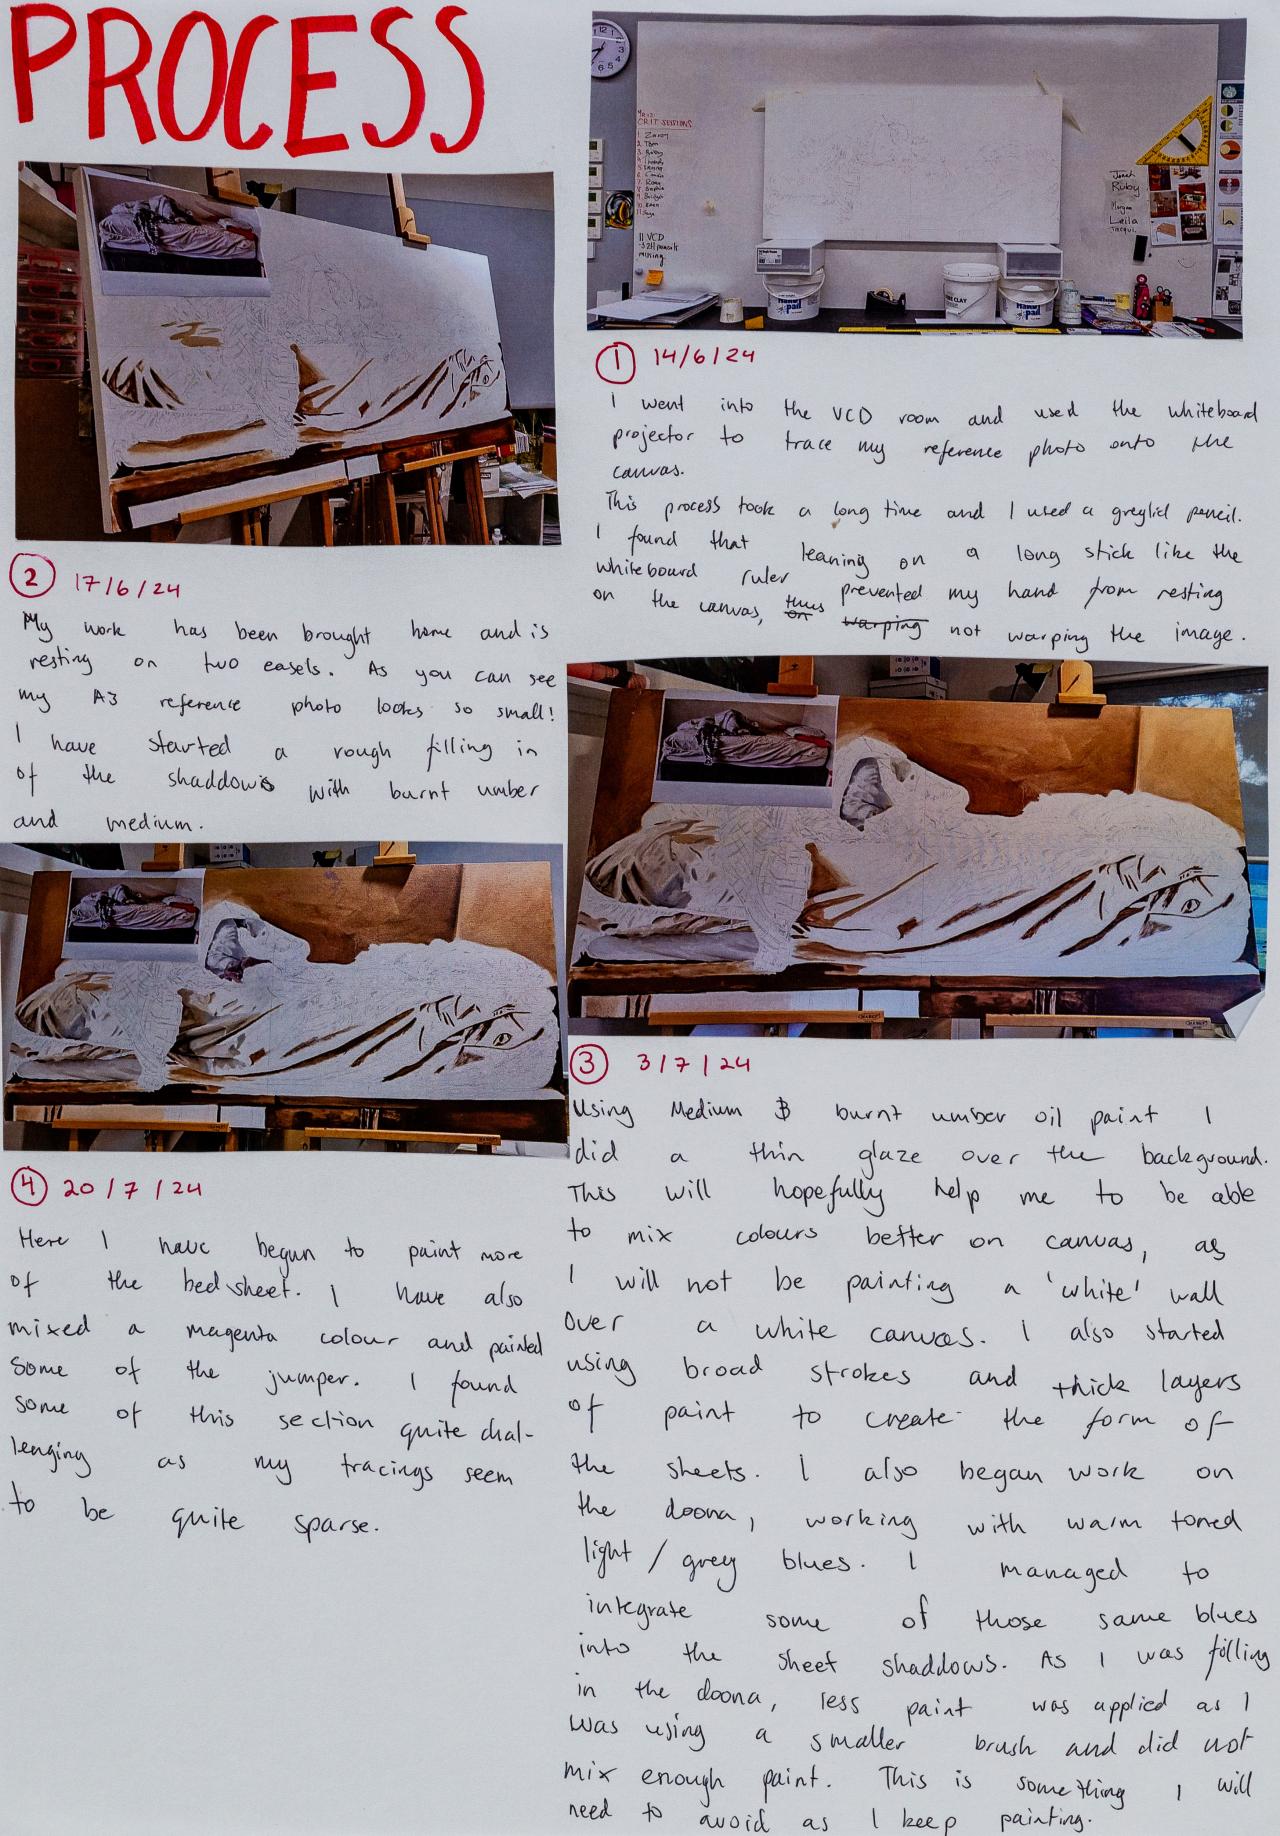 PROCESS
YR 12
CRIT SESSIONS
1. Zanny
2. Tom
3. Ruby
11 VCD
missing
Jonah
Ruby
Morgan
Leila
Jacqui
CLAY
pad
pad
① 14/6/24
I went into the VCD room and used the whiteboard
projector to trace my reference photo onto the
canvas.
This process took a long time and I used a greylid pencil.
I found that leaning on a long stick like the
whiteboard ruler prevented my hand from resting
on the canvas, thus on warping not warping the image.
② 17/6/24
My work has been brought home and is
resting on two easels. As you can see
my A3 reference photo looks so small!
I have started a rough filling in
of the shaddows with burnt umber
and medium.
③ 3/7/24
Using Medium & burnt umber oil paint I
did a thin glaze over the background.
This will hopefully help me to be able
to mix colours better on canvas, as
I will not be painting a 'white' wall
over a white canvas. I also started
using broad strokes and thick layers
of paint to create the form of
the sheets. I also began work on
the doona, working with warm toned
light / grey blues. I managed to
integrate some of those same blues
into the sheet shaddows. As I was filling
in the doona, less paint was applied as I
was using a smaller brush and did not
mix enough paint. This is something I will
need to avoid as I keep painting.
④ 20/7/24
Here I have begun to paint more
of the bedsheet. I have also
mixed a magenta colour and painted
some of the jumper. I found
some of this section quite chal-
lenging as my tracings seem
to be quite sparse.